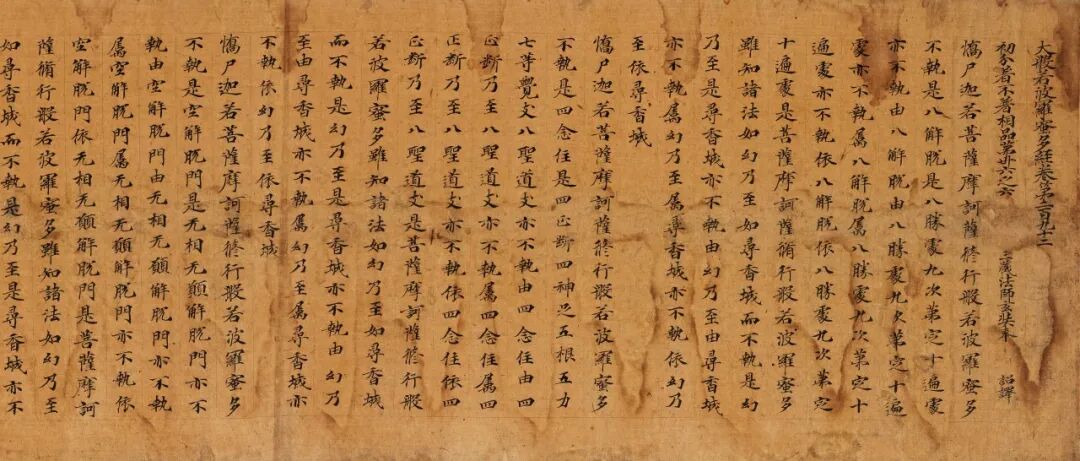 大般若波羅蜜多經卷第二百九十三
初分著不著相品第卅六之六 三藏法師玄奘奉 詔譯
憍尸迦若菩薩摩訶薩修行般若波羅蜜多
不執是八解脫是八勝處九次第定十遍處
亦不執由八解脫由八勝處九次第定十遍
處亦不執属八解脫属八勝處九次第定十
遍處亦不執依八解脫依八勝處九次第定
十遍處是菩薩摩訶薩脩行般若波羅蜜多
雖知諸法如幻乃至如尋香城而不執是幻
乃至是尋香城亦不執由幻乃至由尋香城
亦不執属幻乃至属尋香城亦不執依幻乃
至依尋香城
憍尸迦若菩薩摩訶薩修行般若波羅蜜多
不執是四念住是四正斷四神足五根五力
七等覺支八聖道支亦不執由四念住由四
正斷乃至八聖道支亦不執属四念住属四
正斷乃至八聖道支亦不執依四念住依四
正斷乃至八聖道支是菩薩摩訶薩修行般
若波羅蜜多雖知諸法如幻乃至如尋香城
而不執是幻乃至是尋香城亦不執由幻乃
至由尋香城亦不執属幻乃至属尋香城亦
不執依幻乃至依尋香城
憍尸迦若菩薩摩訶薩修行般若波羅蜜多
不執是空解脫門是无相无願解脫門亦不
執由空解脫門由无相无願解脫門亦不執
属空解脫門属无相无願解脫門亦不執依
空解脫門依无相无願解脫門是菩薩摩訶
薩脩行般若波羅蜜多雖知諸法如幻乃至
如尋香城而不執是幻乃至是尋香城亦不